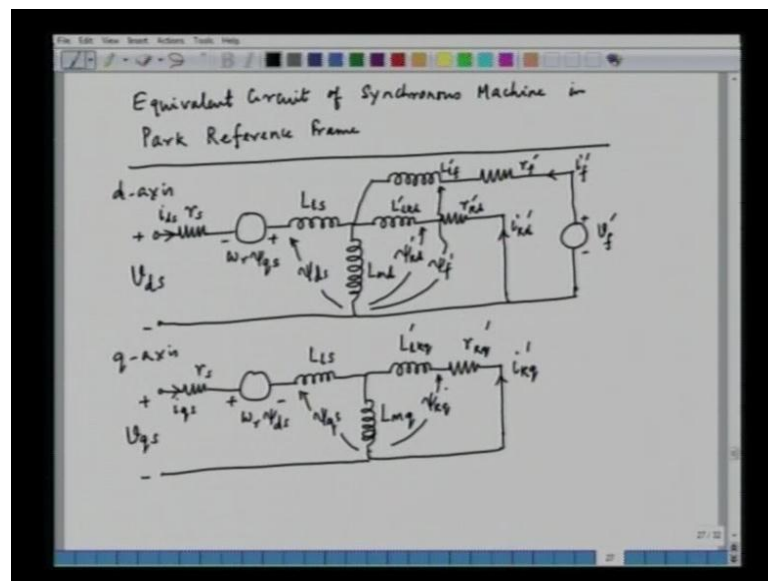 File Edit View Insert Actions Tools Help
Equivalent Circuit of Synchronous Machine in
Park Reference Frame
d-axis
i_ds r_s
+
- +
ω_r ψ_qs
L_ls
L'_lf
r_f'
i_f'
L'_lkd
r'_kd
i'_kd
+
-
V_f'
V_ds
ψ_ds
L_md
ψ'_kd
ψ'_f
-
q-axis
r_s
+
i_qs
+ -
ω_r ψ_ds
L_ls
L'_lkq
r_kq'
i_kq'
V_qs
ψ_qs
L_mq
ψ_kq'
-
27/32
27